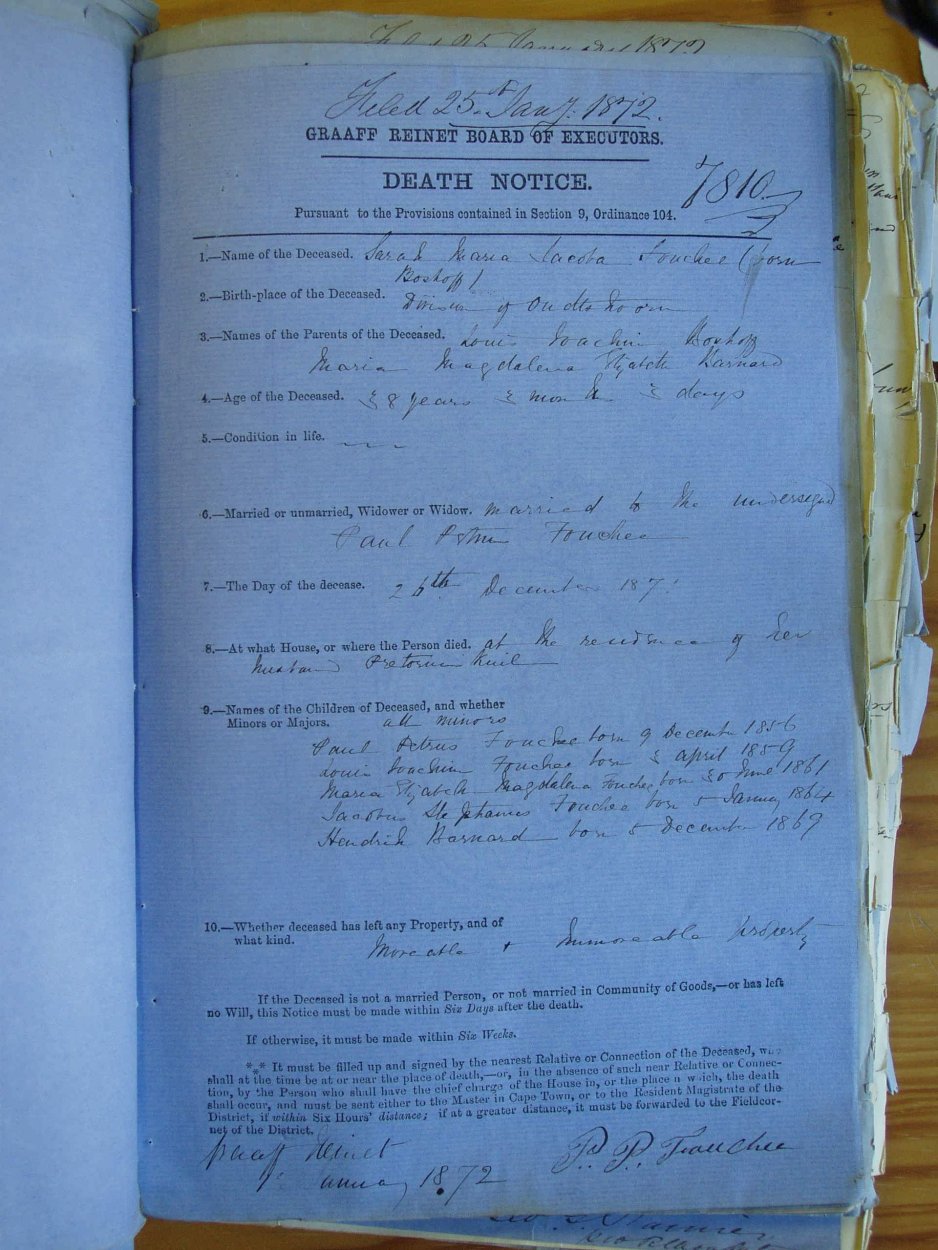 Filed 25 Jany. 1872.
GRAAFF REINET BOARD OF EXECUTORS.
DEATH NOTICE.
7810
Pursuant to the Provisions contained in Section 9, Ordinance 104.
1.—Name of the Deceased. Sarah Maria Jacoba Fouchee (born
Boshoff)
2.—Birth-place of the Deceased. Division of Oudtshoorn
3.—Names of the Parents of the Deceased. Louis Joachim Boshoff
Maria Magdalena Barnard
4.—Age of the Deceased. 38 years 3 month 3 days
5.—Condition in life.
6.—Married or unmarried, Widower or Widow. married to the undersigned
Paul Petrus Fouchee
7.—The Day of the decease. 26th December 187
8.—At what House, or where the Person died. at the residence of her
husband Pretorius Kuil
9.—Names of the Children of Deceased, and whether
Minors or Majors. all minors
Paul Petrus Fouchee born 9 December 1856
Louis Joachim Fouchee born 3 April 1859
Maria Magdalena Fouchee born 30 June 1861
Jacobus Stephanus Fouchee born 5 January 1864
Hendrik Barnard born 5 December 1869
10.—Whether deceased has left any Property, and of
what kind. Moveable + Immoveable Property
If the Deceased is not a married Person, or not married in Community of Goods,—or has left
no Will, this Notice must be made within Six Days after the death.
If otherwise, it must be made within Six Weeks.
*** It must be filled up and signed by the nearest Relative or Connection of the Deceased, who
shall at the time be at or near the place of death,—or, in the absence of such near Relative or Connec-
tion, by the Person who shall have the chief charge of the House in, or the place n which, the death
shall occur, and must be sent either to the Master in Cape Town, or to the Resident Magistrate of the
District, if within Six Hours' distance; if at a greater distance, it must be forwarded to the Fieldcor-
net of the District.
Graaff Reinet
January 1872
P. P. Fouchee